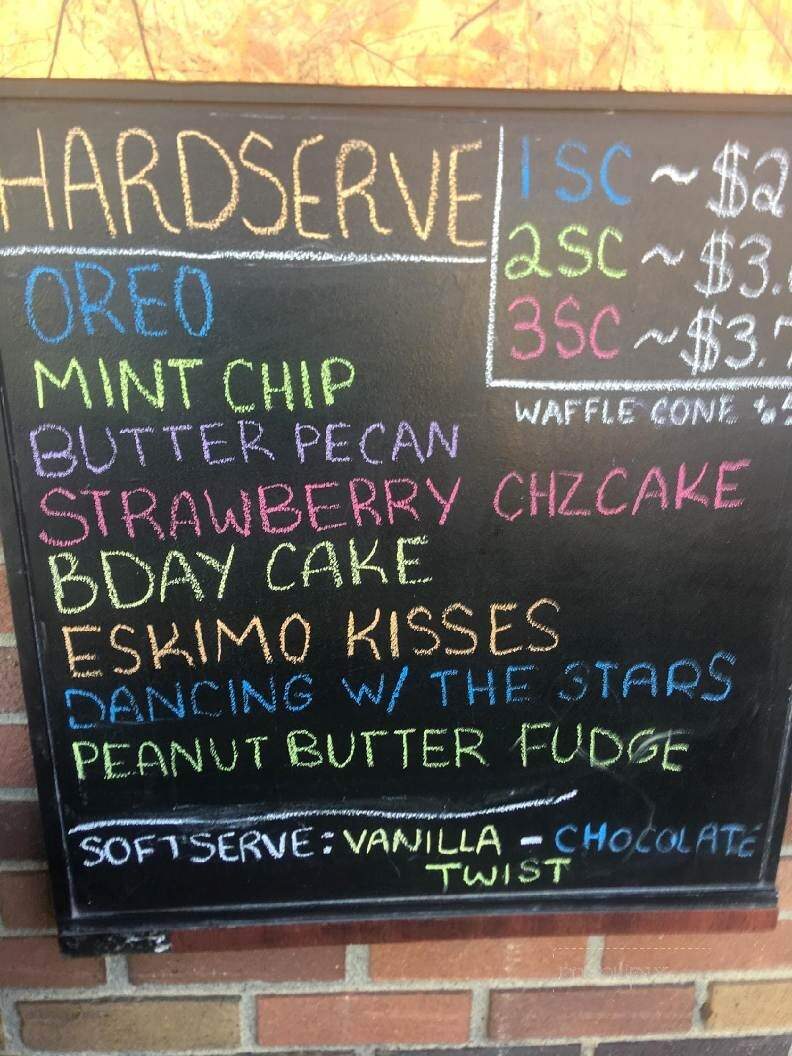 HARDSERVE
1SC ~ $2
2SC ~ $3.
3SC ~ $3.7
WAFFLE CONE
OREO
MINT CHIP
BUTTER PECAN
STRAWBERRY CHZCAKE
BDAY CAKE
ESKIMO KISSES
DANCING W/ THE STARS
PEANUT BUTTER FUDGE
SOFTSERVE: VANILLA - CHOCOLATE
TWIST